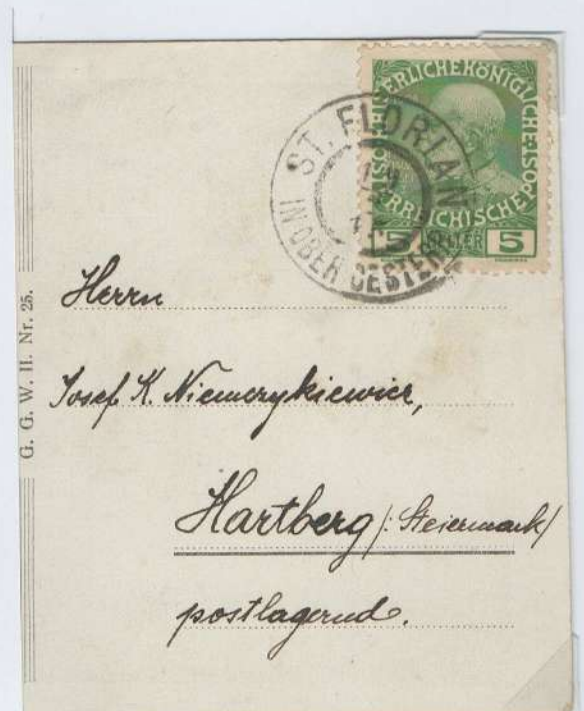 KAISERLICHE KÖNIGLICHE ÖSTERREICHISCHE POST
5 HELLER 5
ST. FLORIAN
IN OBER OESTER
G. G. W. II. Nr. 25.
Herrn
Josef K. Niemczykiewicz,
Hartberg /: Steiermark/
postlagernd.